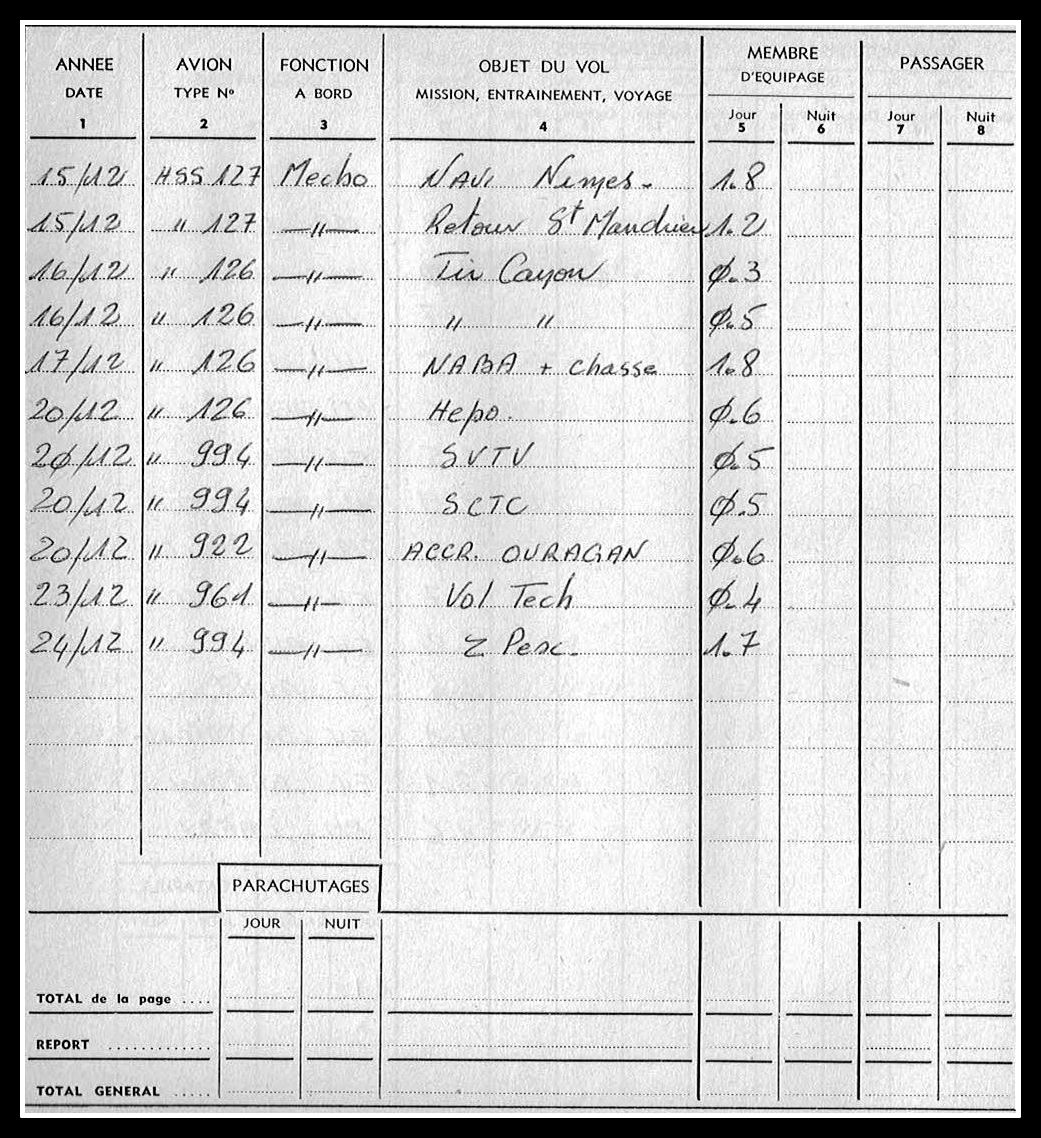 ANNEE AVION FONCTION OBJET DU VOL MEMBRE D'EQUIPAGE PASSAGER
DATE TYPE No A BORD MISSION, ENTRAINEMENT, VOYAGE Jour Nuit Jour Nuit
1 2 3 4 5 6 7 8
15/12 HSS 127 Mecbo NAVI Nimes. 1.8
15/12 " 127 —"— Retour St Mandrier 1.2
16/12 " 126 —"— Tir Cayon Ø.3
16/12 " 126 —"— " " Ø.5
17/12 " 126 —"— NABA + chasse 1.8
20/12 " 126 —"— Hepo. Ø.6
2Ø/12 " 994 —"— SVTV Ø.5
20/12 " 994 —"— SCTC Ø.5
20/12 " 922 —"— ACCR. OURAGAN Ø.6
23/12 " 961 —"— Vol Tech Ø.4
24/12 " 994 —"— Z 1.7
PARACHUTAGES
JOUR NUIT
TOTAL de la page ....
REPORT ............
TOTAL GENERAL .....